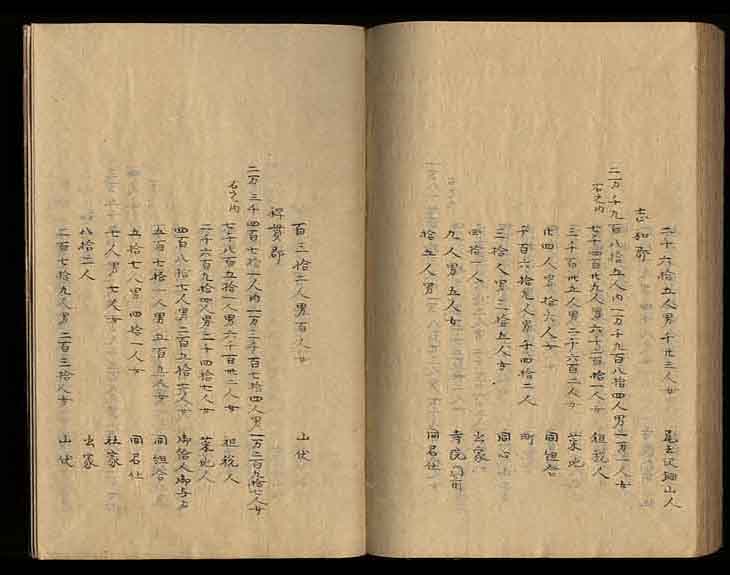 二千六拾五人男千廿三人女 山人
志和郡
二万千九百八拾五人内一万千九百八拾四人男一万一人女
右之内
七千四百廿九人男六千二百拾一人女 租税人
三千百廿五人男二千六百二人女 菜地
廿四人男拾六人女 同組合
千百六拾九人男千四拾二人 町
三拾人男二拾五人女 同心
四拾二人 出家
九人男五人女 寺院門前
拾五人男 同名仕
百三拾二人男百人女 山伏
稗貫郡
二万三千四百七拾一人内一万三千百七拾四人男一万二百九拾七人女
右之内
七千八百五拾一人男六千百廿二人女 租税人
二千六百九拾四人男二千四拾七人女 菜地人
四百八拾七人男二百五拾七人女
五百七拾一人男五百五人女 同組合
五拾七人男四拾一人女 同名仕
七人男七人女 社家
八拾二人 出家
二百七拾九人男二百三拾人女 山伏